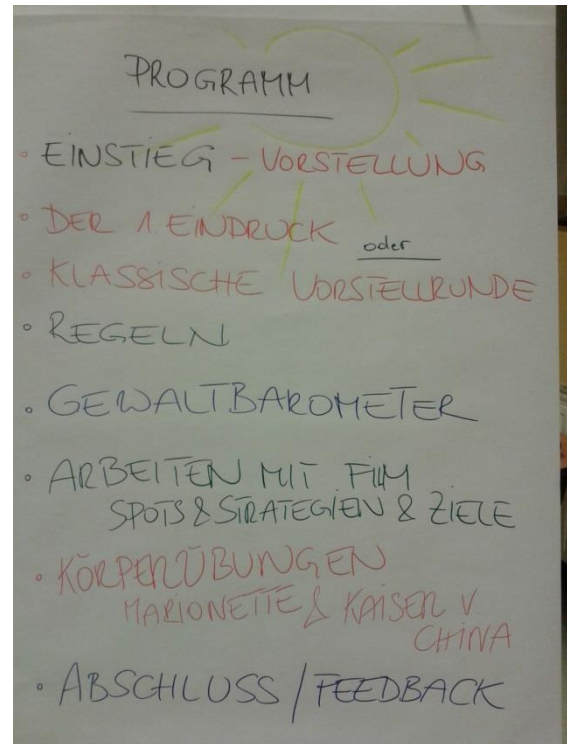 PROGRAMM
• EINSTIEG - VORSTELLUNG
• DER 1. EINDRUCK oder
• KLASSISCHE VORSTELLRUNDE
• REGELN
• GEWALTBAROMETER
• ARBEITEN MIT FILM
SPOTS & STRATEGIEN & ZIELE
• KÖRPERÜBUNGEN
MARIONETTE & KAISER V.
CHINA
• ABSCHLUSS / FEEDBACK